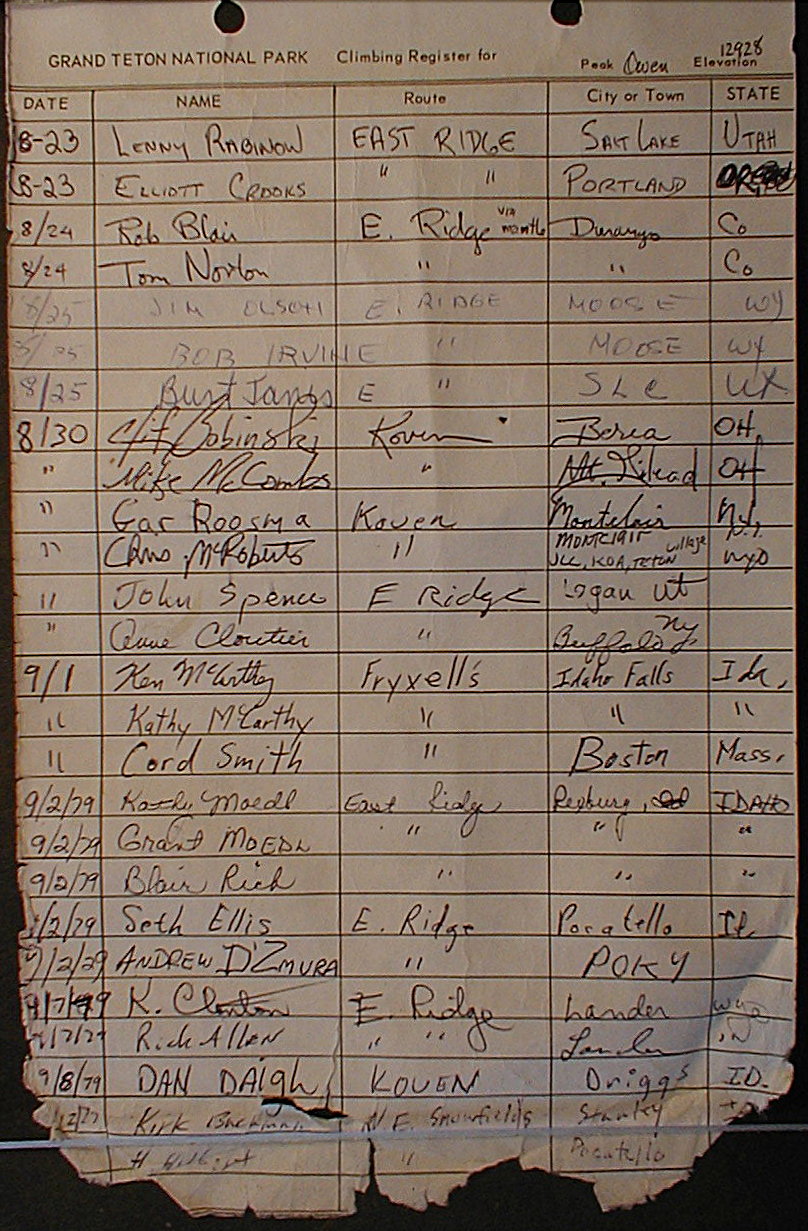 GRAND TETON NATIONAL PARK Climbing Register for Peak Owen Elevation 12928
DATE NAME Route City or Town STATE
8-23 LENNY RABINOW EAST RIDGE SALT LAKE UTAH
8-23 ELLIOTT CROOKS " " PORTLAND
8/24 Rob Blair E. Ridge via Durango Co
8/24 Tom Norton " " Co
8/25 JIM OLSON E. RIDGE MOOSE WY
BOB IRVINE " MOOSE WY
8/25 Burt Janis E " SLC UT.
8/30 Clif Bobinski Koven Berea OH.
" Mike McCombs " Mt. Gilead OH
" Gar Roosma Koven Montclair N.J.
" Chris McRoberts " MONTCLAIR N.J.
JLL, KOA, TETON Village WYO
" John Spence E Ridge Logan Ut
" Anne Cloutier " Buffalo NY
9/1 Ken McCarthy Fryxell's Idaho Falls Ida.
" Kathy McCarthy " " "
" Cord Smith " Boston Mass.
9/2/79 Moedl East Ridge Rexburg, IDAHO
9/2/79 Grant MOEDL " " "
9/2/79 Blair Rich " " "
9/2/79 Seth Ellis E. Ridge Pocatello Id.
9/2/79 ANDREW D'ZMURA " POKY
9/7/79 K. Clanton E. Ridge Lander Wyo
9/7/79 Rick Allen " " Lander "
9/8/79 DAN DAigh KOVEN Driggs ID.
Kirk Bachman N E. Snowfields Stanley
H. " Pocatello